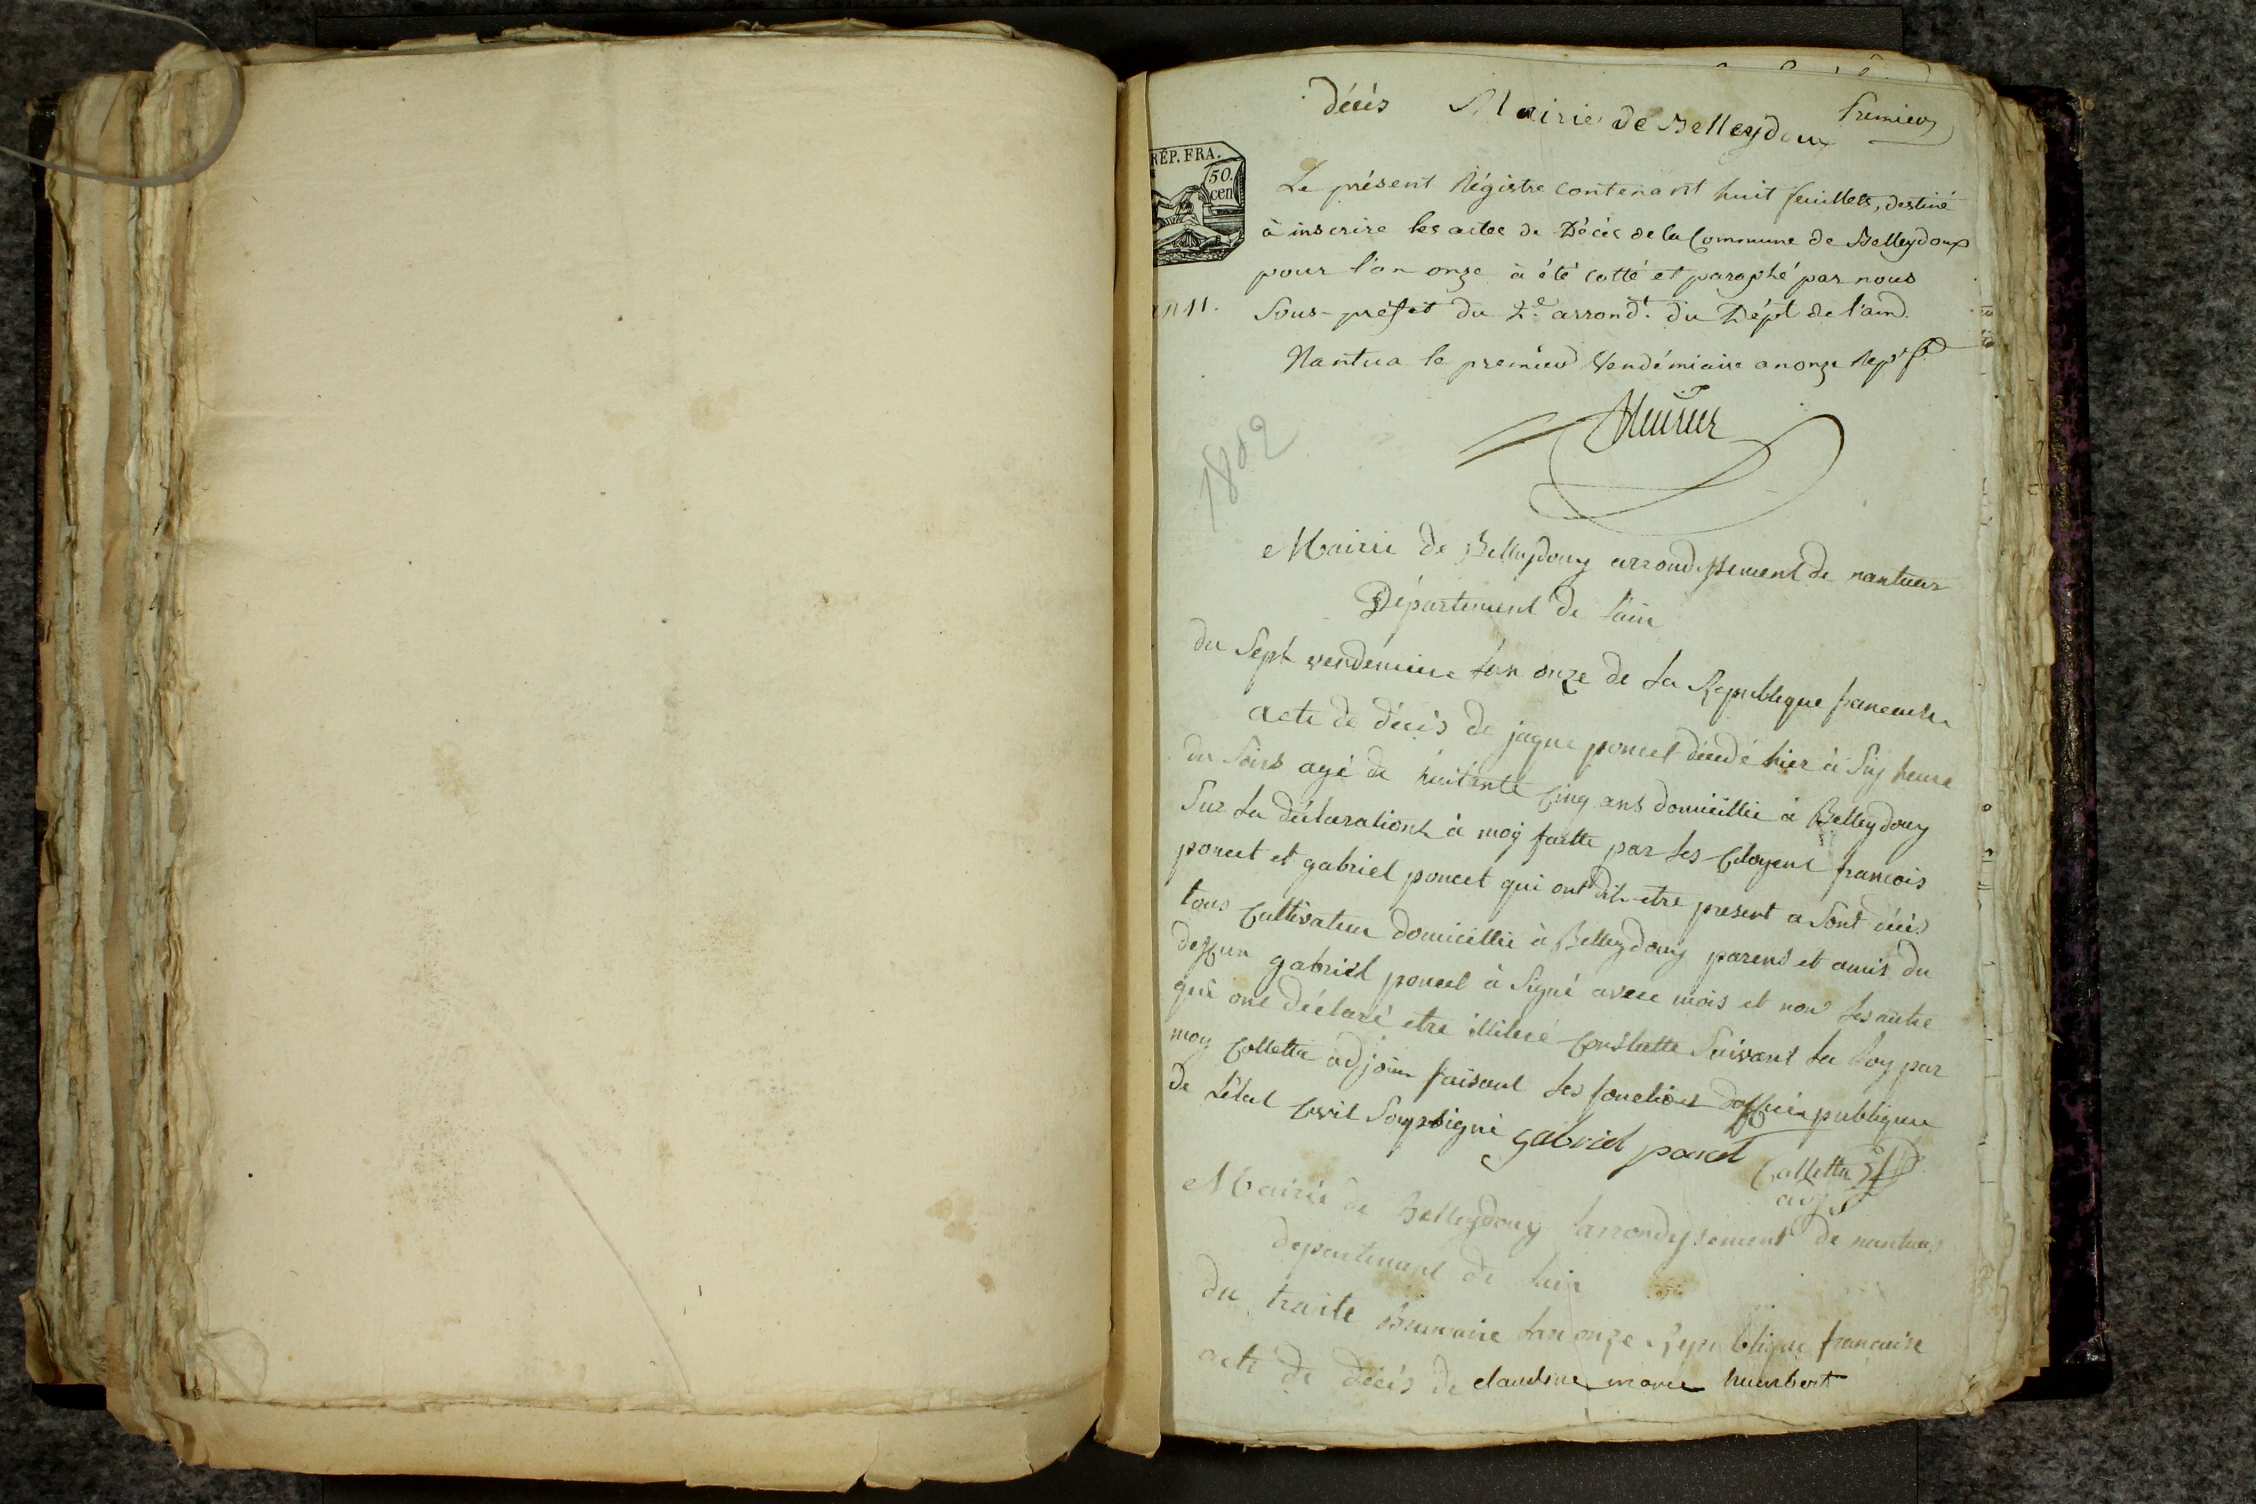 décès Mairie de Belleydoux Premier
RÉP. FRA.
50.
cen
Le présent Régistre contenant huit feuillets, destiné
à inscrire les actes de Décès de la Commune de Belleydoux
pour l'an onze à été cotté et paraphé par nous
an 11.
Sous-préfet du 4.e arrond.t du Dépt de l'ain.
Nantua le premier Vendémiaire an onze
1802
Mairie de Belleydoux arrondissement de nantua
Département de l'ain
du Sept vendemiere lan onze de la Republique francaise
acte de décès de jaque poncet décédé hier à Six heure
du Soirs agé de huitante Cinq ans domicillié à Belleydoux
Sur la déclarationt à moÿ faitte par les Citoyent francois
poncet et gabriel poncet qui ont dit etre present a Sont décès
tous Cultivateur domicillié à Belleydoux parens et amis du
deffun gabriel poncet à Signé avece mois et non les autre
qui ont déclaré etre illiteré Constatté Suivant la Loy par
moy Colletta adjoin faisant les fonctions dofficier publique
de L'état Civil Soussigné gabriel poncet
Colletta
adj
Mairie de Belleydoux larrondyssement de nantua
departement de lain
du traite Brumaire lan onze Republique francaise
acte de décès de claudine marie humbert